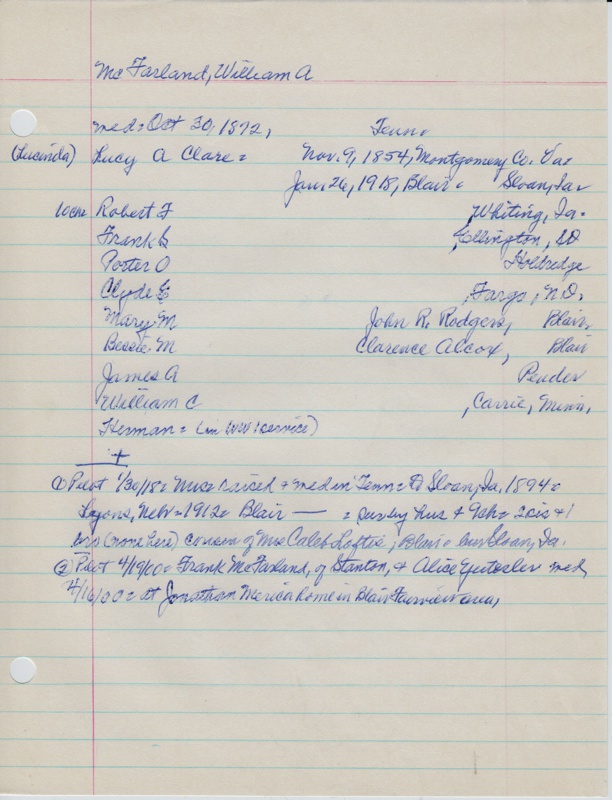 McFarland, William A
med = Oct 30, 1872, Tenn =
(Lucinda) Lucy A Clare = Nov. 9, 1854, Montgomery Co. Va =
Jan. 26, 1918, Blair = Sloan, Ia
10 chn Robert F Whiting, Ia.
Frank S , Ellington, SD
Porter O Holbredge
Clyde E , Fargo, N.D.
Mary M John R. Rodgers, Blair,
Bessie M Clarence Alcox, Blair
James A Pender
William C , Currie, Minn.
Herman = (in WW 1 service)
+
① Pilot 1/30/18 = Mrs = raised + med in Tenn = Sloan, Ia, 1894 =
Lyons, Nebr = 1912 = Blair — = surv by hus + 9 ch = 2 sis + 1
bro (none here) cousin of Mrs Caleb Loftis, Blair = bur Sloan, Ia.
② Pilot 4/19/00 = Frank McFarland, of Stanton, + Alice med
4/16/00 = at Jonathan Merica home in Blair Fairview area,